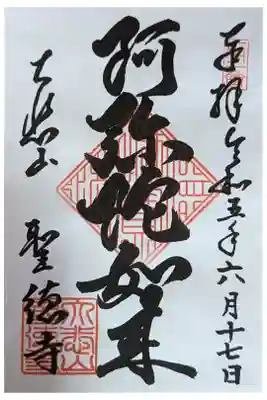 奉拝 令和五年六月十七日
阿弥陀如来
聖徳寺